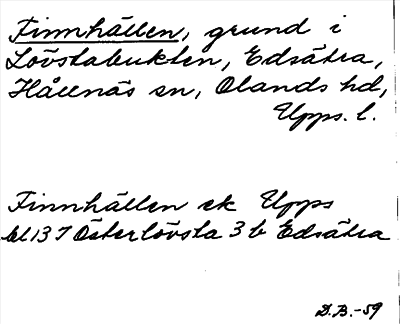 Finnhällen, grund i
Lövstabukten, Edsätra,
Hållnäs sn, Olands hd,
Upps. l.
Finnhällen ek Upps
bl 13 7 Österlövsta 3 b Edsätra
D.B.-59